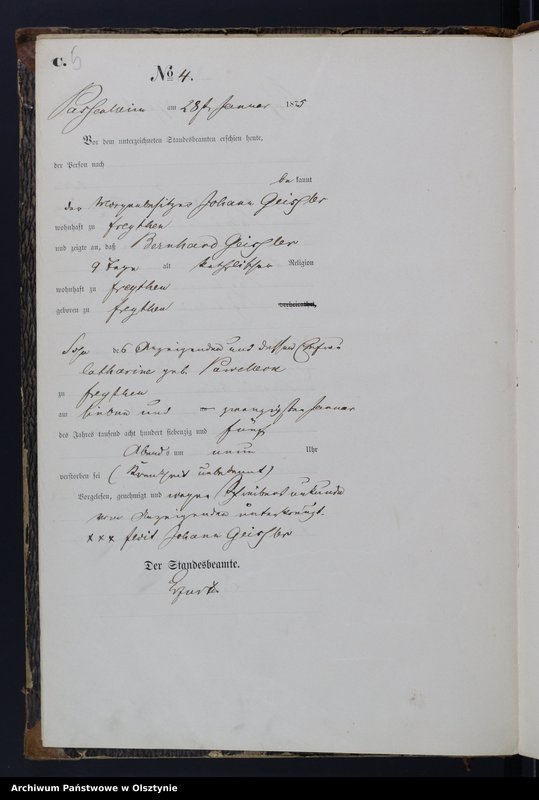 C. 6
No 4.
Passenheim am 28t Januar 1875
Vor dem unterzeichneten Standesbeamten erschien heute,
der Person nach
be kannt
der Morgenbesitzer Johann Geissler
wohnhaft zu Freythen
und zeigte an, daß Bernhard Geissler
9 Tage alt katholischer Religion
wohnhaft zu Freythen
geboren zu Freythen verheirathet,
Sohn des Anzeigenden und dessen Ehefrau
Catharine geb.
zu Freythen
am sieben und zwanzigsten Januar
des Jahres tausend acht hundert siebenzig und fünf
Abends um neun Uhr
verstorben sei (Krankheit unbekannt)
Vorgelesen, genehmigt und wegen Schreibensunkunde
vom Anzeigenden unterkreuzt.
xxx fecit Johann Geissler
Der Standesbeamte.
Archiwum Państwowe w Olsztynie